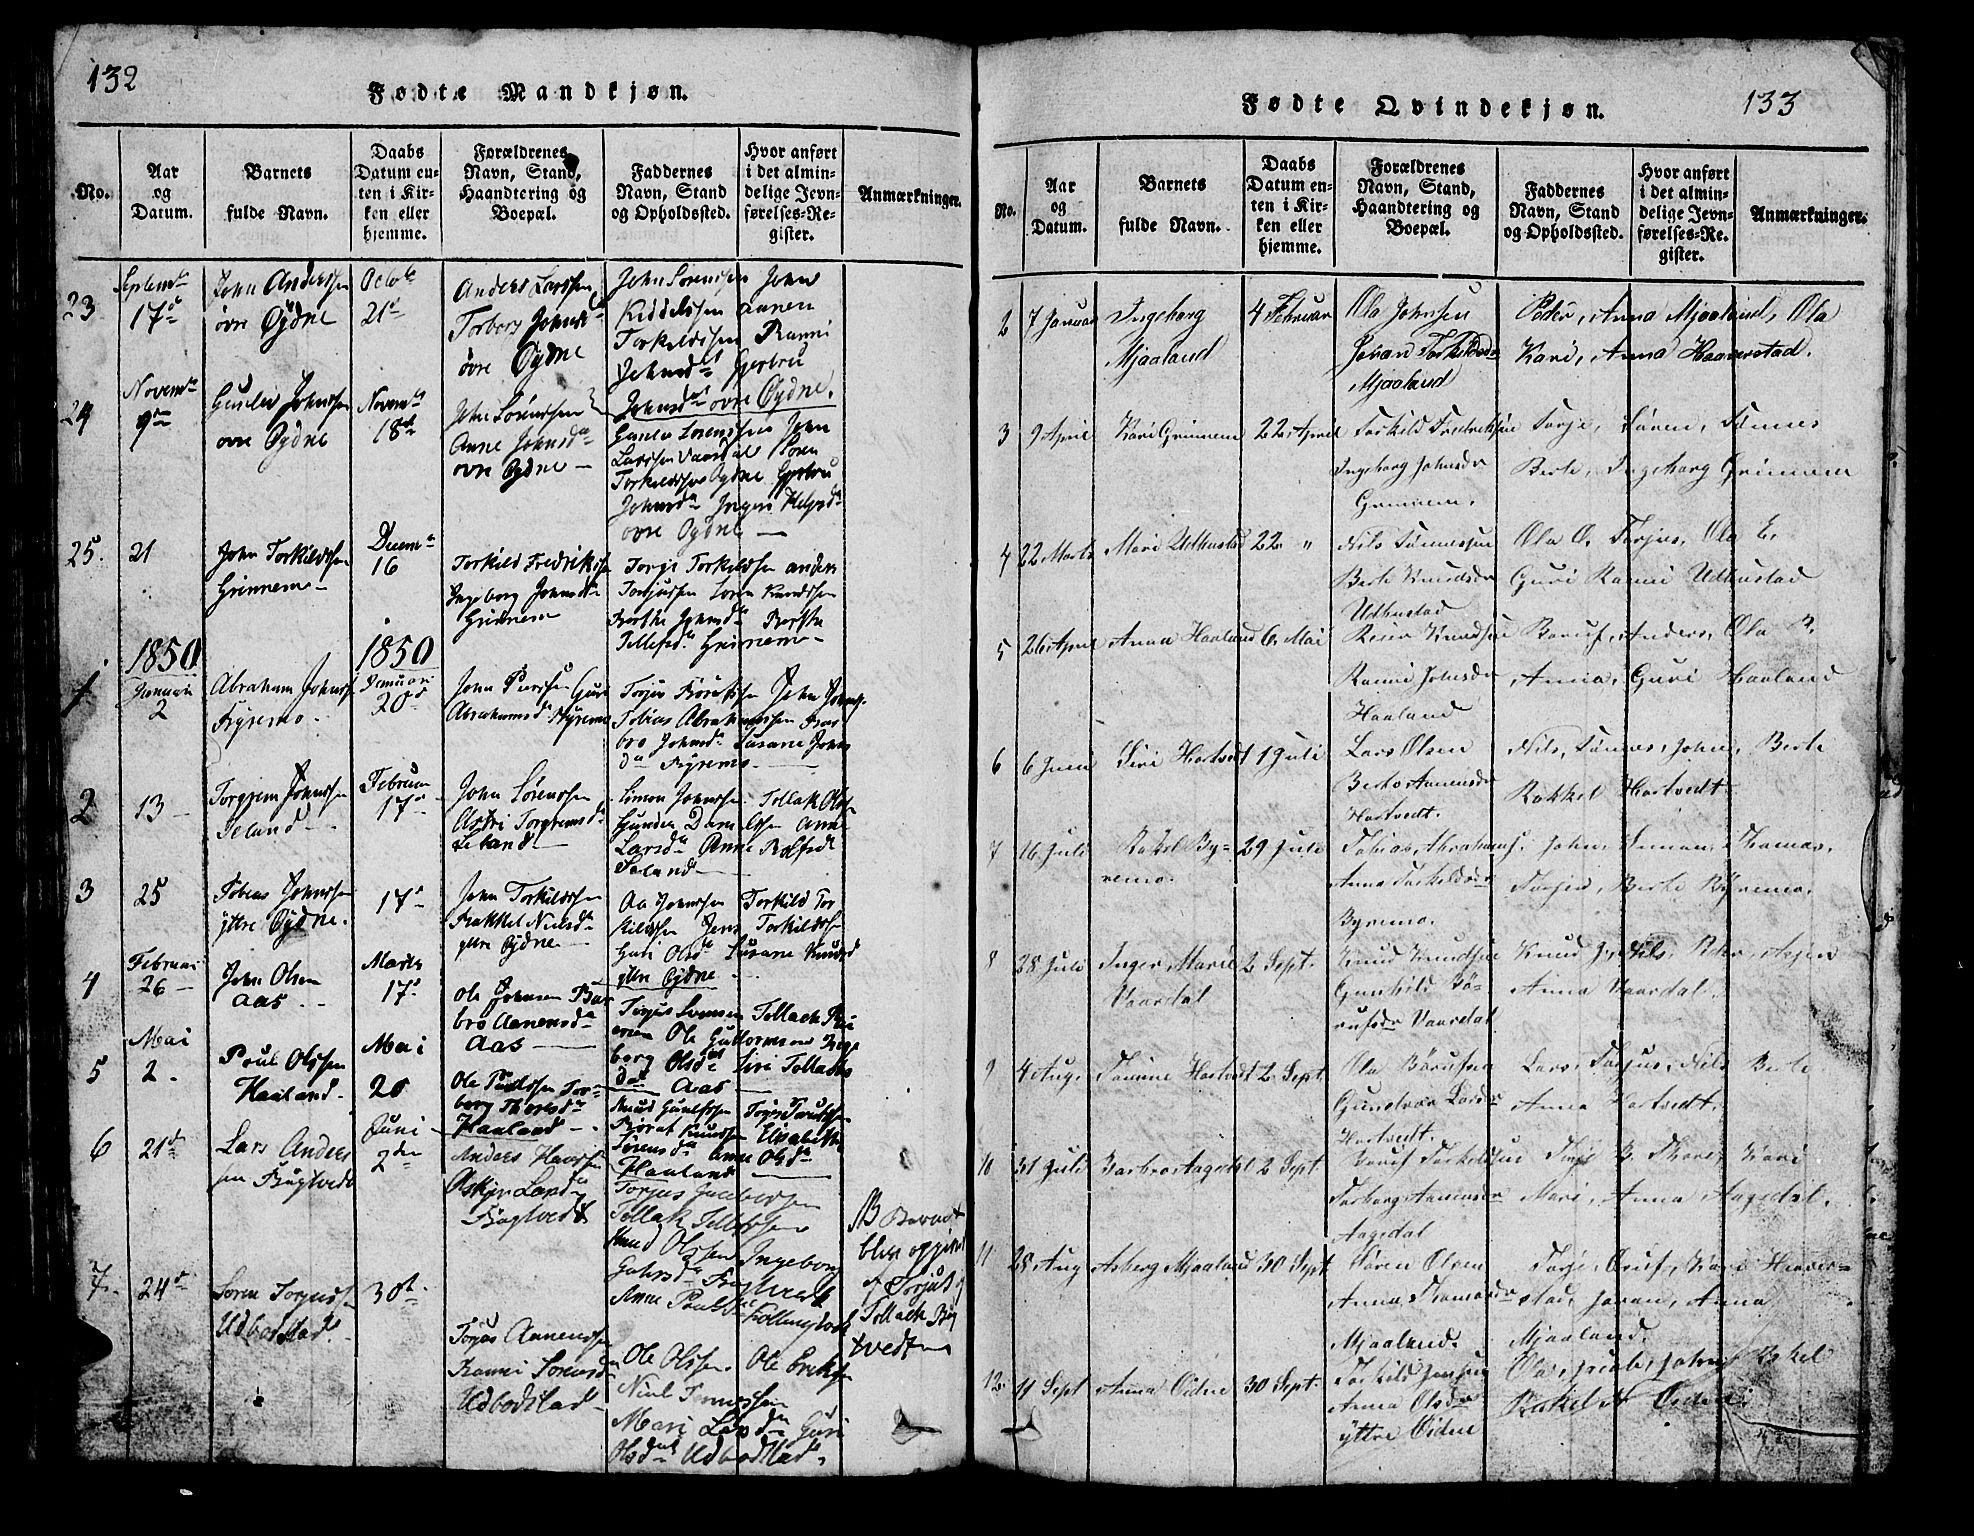 132
Fødte Mandkjøn.
No.
Aar
og
Datum.
Barnets
fulde Navn.
Daabs
Datum en-
ten i Kir-
ken eller
hjemme.
Forældrenes
Navn, Stand,
Haandtering og
Boepæl.
Faddernes
Navn, Stand
og Opholdssted.
Hvor anført
i det almin-
delige Jevn-
førelses-Re-
gister.
Anmærkninger.
23
Septembr
17de
John Anderssen
øvre Øydne
Octobr
21de
Anders Larssen
Torborg Johnsd
øvre Øydne
John Sørenssen John
Kiddelssen Aanen
Torkildssen Ranni
Johnsdr Gjertru
Johnsdr øvre Øydne.
24
Novembr
9de
Gunder Johnssen
øvre Øydne
Novembr
18de
John Sørenssen
Anne Johnsdr
øvre Øydne
Gunder Sørenssen John
Larssen Vaardal Søren
Torkildssen Øydne Gjertru
Johnsdr Inger Helgesd
øvre Øydne
25.
21
John Torkildssen
Grinnem
Decembr
16
Torkild Fredrikssen
Ingeborg Johnsdr
Grinnem
Torje Torkildssen Anders
Torjussen Søren Knudssen
Berthe Johnsdr Berthe
Tellefsdr Grinnem
1850
1850
1
Januari
2
Abraham Johnss
Byremo
Januari
20de
John Peerssen Guri
Abrahamsdr Byremo
Torjus John Johns
Tobias Abrahamssen Bar
bro Johnsdr Susane Johns
dr Byremo
2
13
Torgrim Johnssen
Seland
Februari
17de
John Sørenssen
Astri Torgrimsdr
Seland
Simon Johnssen Tollak Olss
Gunder Danielssen Anne
Larsdr Anne Rolfsdr
Seland
3
25
Tobias Johnssen
ytre Øydne.
17de
John Torkildssen
Rakkel Nielsdr
ytre Øydne
Aa Johnssen Torkild Tor
kildssen Jens Torkildss
Guri Olsdr Susane Knudsd
ytre Øydne
4
Februari
26
John Olsen
Aas
Marts
17de
Ole Johnsen Bar
bro Aanensdr
Aas
Torjus Svensen Tollack
Ole Guttormsen
borg Olsdr Siri Tollacks
dr Aas
5
Mai
2
Poul Olssen
Haaland
Mai
20
Ole Poulssen Tor-
borg Thoresdr
Haaland
Knud Torjus
Knudssen Elisabeth
Sørensdr Anne Olsdr
Haaland
6
21de
Lars Anders
sen Bøgtvedt
Juni
2den
Anders
Askjer Larsdr
Bøgtvedt
Torjus Gunbersen
Tollak Tellefssen
Knud Olssen Ingeborg
Anne Poulsdr
NB Barnet
blev opgivet
af Torjus og
Tollack Bøg
tvedt
7.
24de
Søren Torjussen
Udbodstad
30de
Torjus Aanenssen
Ranni Sørensdr
Udbodstad
Ole Olssen Ole Eriks
Niel Tønnessen
Mari Larsdr Guri
Olsdr Udbodstad.
Fødte Qvindekjøn.
133
No.
Aar
og
Datum.
Barnets
fulde Navn.
Daabs
Datum en-
ten i Kir-
ken eller
hjemme.
Forældrenes
Navn, Stand,
Haandtering og
Boepæl.
Faddernes
Navn, Stand
og Opholdssted.
Hvor anført
i det almin-
delige Jevn-
førelses-Re-
gister.
Anmærkninger.
2
7 Januar
Ingeborg
Mjaaland
4 Februar
Ola Johnsen
Joran Torkildsdr
Mjaaland
Peder, Anna Mjaaland, Ola
Kari, Anna Haaverstad.
3
9 April
Kari Grinnem
22 April
Torkild Fredriksen
Ingeborg Johnsdr
Grinnem.
Torje, Søren, Tønnes
Berte, Ingeborg Grinnem
4
22 Marts
Mari Udhustad
22 "
Nils Tønnesen
Berte Knudsdr
Udhustad
Ola O. Torjus, Ola E.
Guri Ranni Udhustad
5
26 April
Anna Haaland
6. Mai
Reier Knudsen
Ranni Johnsdr
Haaland
Boruf, Anders, Ola R.
Anna, Guri Haaland
6
6 Juni
Siri Hartvedt
1 Juli
Lars Olsen
Berte Aanensdr
Hartvedt.
Nils, Tønnes, John, Berte
Rakkel Hartvedt.
7
16 Juli
Rakel By-
remo.
29 Juli
Tobias Abrahams.
Anna Torkeldsdr
Byremo.
John, Simon, Thomas,
Torjer, Berte Byremo.
8
28 Juli
Inger Marie
Vaardal
2 Sept.
Knud Knudsen
Gunhild Bø-
rufsdr Vaardal
Knud J, Nils, Peder, Asjer
Anna Vaardal.
9
4 Aug.
Tomine Hartvedt
2 Sept.
Ola Børufsen
Gunvor Larsdr
Hartvedt.
Lars, Torjus, Nils Berte
Anna Hartvedt.
10
31 Juli
Barbro Aagedal
2 Sept.
Boruf Torkeldsen
Torborg Aanensdr
Aagedal
Torje B. Thore, Kari
Mari, Anna Aagedal.
11
28 Aug
Asborg Mjaaland
30 Sept
Søren Olsen
Anna Thomasdr
Mjaaland.
Torje, Oruf, Kari Haaver-
stad, Joran, Anna
Mjaaland.
12.
11 Sept
Anna Øidne
30 Sept.
Torkild Jensen
Anna Olsdr
ytre Øidne
Ola, Jacob, John, Rakel
Rakel N Øidne.